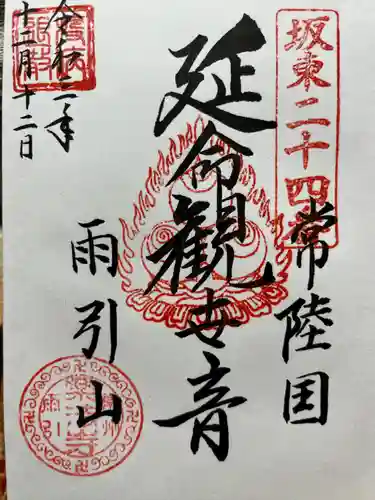 坂東二十四番
常陸国
延命観世音
雨引山
令和二年
十二月十二日
楽法寺
雨引